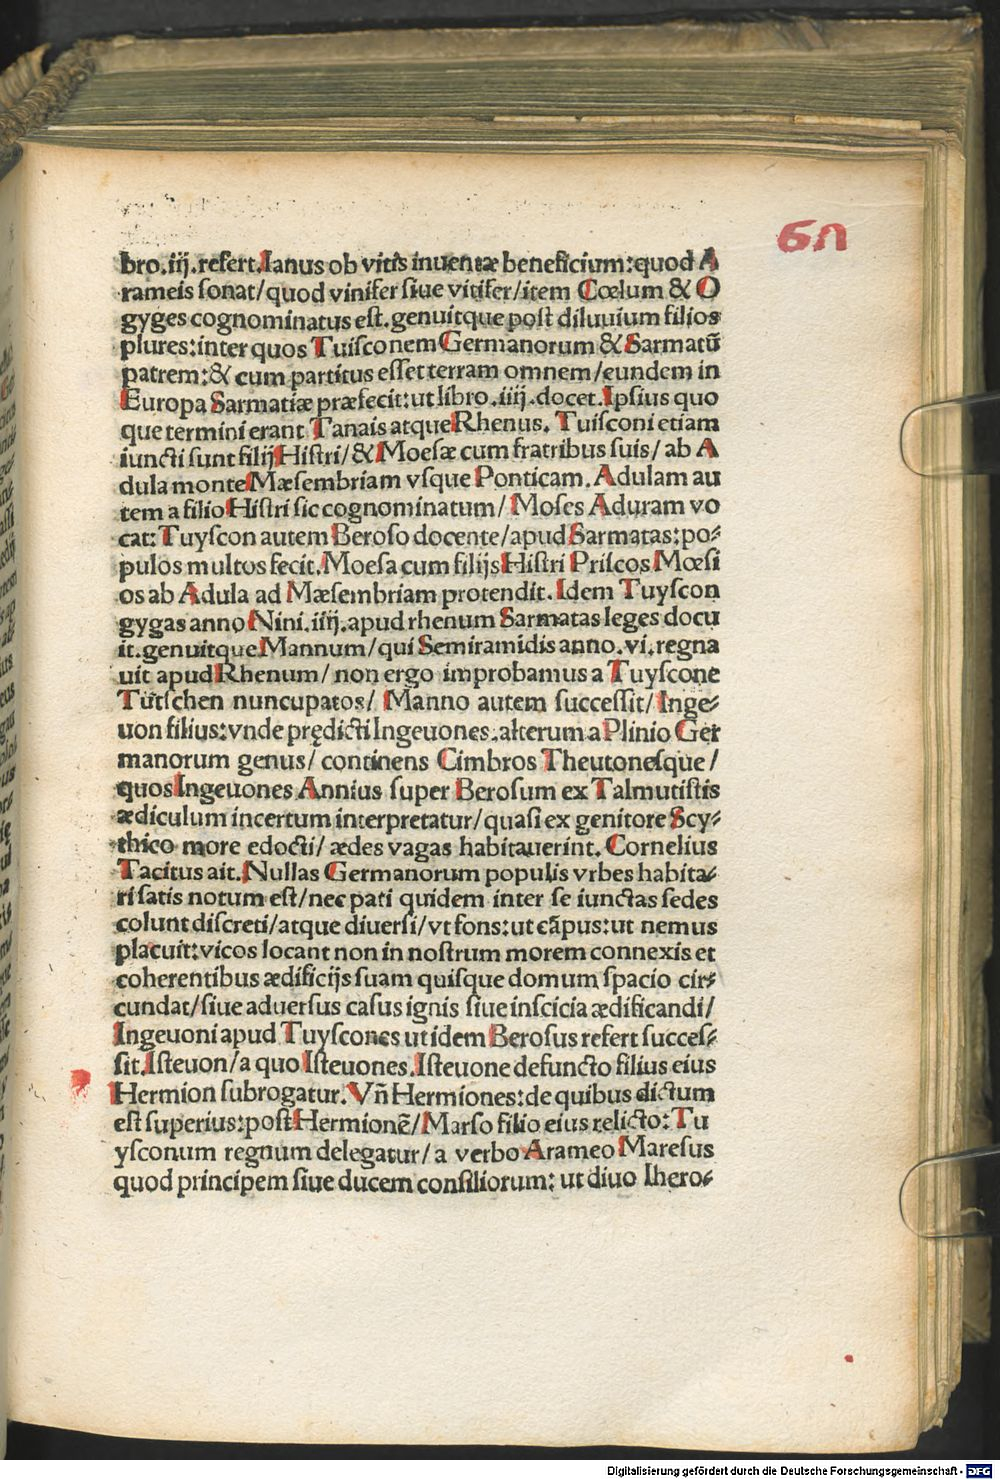 6n
bro.iij.refert.Ianus ob vitis inuentæ beneficium:quod A
rameis sonat/quod vinifer siue vitifer/item Cœlum & O
gyges cognominatus est.genuitque post diluuium filios
plures:inter quos Tuisconem Germanorum & Sarmatū
patrem:& cum partitus esset terram omnem/eundem in
Europa Sarmatiæ præfecit:ut libro.iiij.docet.Ipsius quo
que termini erant Tanais atque Rhenus. Tuisconi etiam
iuncti sunt filij Histri/& Moesæ cum fratribus suis/ ab A
dula monte Mæsembriam vsque Ponticam. Adulam au
tem a filio Histri sic cognominatum/ Moses Aduram vo
cat: Tuyscon autem Beroso docente/apud Sarmatas:po⸗
pulos multos fecit. Moesa cum filijs Histri Priscos Mœsi
os ab Adula ad Mæsembriam protendit. Idem Tuyscon
gygas anno Nini.iiij.apud rhenum Sarmatas leges docu
it.genuitque Mannum/qui Semiramidis anno.vi.regna
uit apud Rhenum/ non ergo improbamus a Tuyscone
Tütschen nuncupatos/ Manno autem successit/ Inge⸗
uon filius:vnde prędicti Ingeuones.alterum a Plinio Ger
manorum genus/ continens Cimbros Theutonesque/
quos Ingeuones Annius super Berosum ex Talmutistis
ædiculum incertum interpretatur/quasi ex genitore Scy⸗
thico more edocti/ ædes vagas habitauerint. Cornelius
Tacitus ait. Nullas Germanorum populis vrbes habita⸗
ri satis notum est/nec pati quidem inter se iunctas sedes
colunt discreti/atque diuersi/vt fons:ut cāpus:ut nemus
placuit:vicos locant non in nostrum morem connexis et
coherentibus ædificijs suam quisque domum spacio cir⸗
cundat/siue aduersus casus ignis siue inscicia ædificandi/
Ingeuoni apud Tuyscones ut idem Berosus refert succes⸗
sit.Isteuon/a quo Isteuones.Isteuone defuncto filius eius
Hermion subrogatur.Vñ Hermiones:de quibus dictum
est superius:post Hermionē/ Marso filio eius relicto: Tu
ysconum regnum delegatur/a verbo Arameo Maresus
quod principem siue ducem consiliorum: ut diuo Ihero⸗
Digitalisierung gefördert durch die Deutsche Forschungsgemeinschaft - DFG